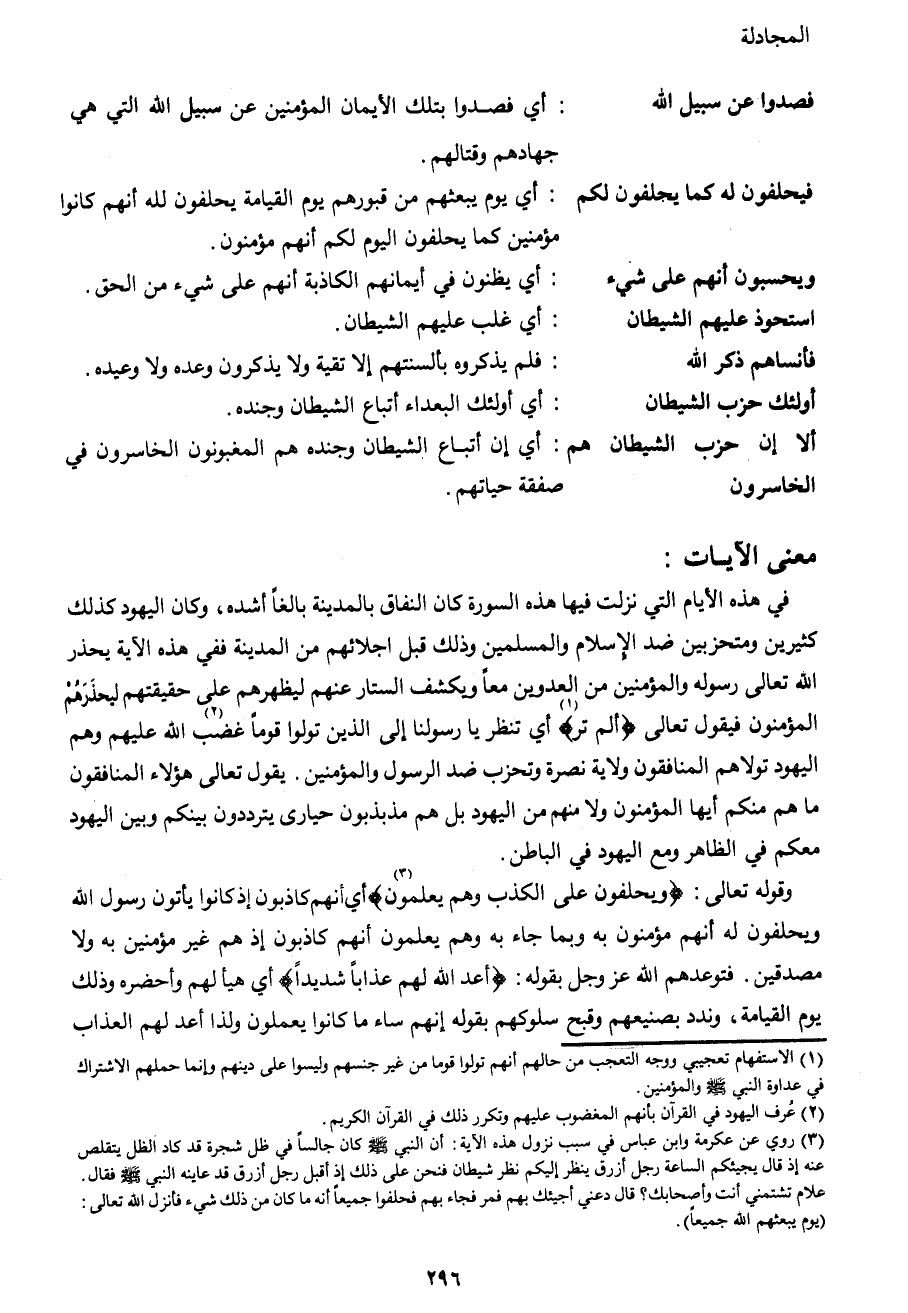 المجادلة
فصدوا عن سبيل الله : أي فصـدوا بتلك الأيمان المؤمنين عن سبيل الله التي هي
جهادهم وقتالهم .
فيحلفون له كما يحلفون لكم : أي يوم يبعثهم من قبورهم يوم القيامة يحلفون لله أنهم كانوا
مؤمنين كما يحلفون اليوم لكم أنهم مؤمنون .
ويحسبون أنهم على شيء : أي يظنون في أيمانهم الكاذبة أنهم على شيء من الحق .
استحوذ عليهم الشيطان : أي غلب عليهم الشيطان .
فأنساهم ذكر الله : فلم يذكروه بألسنتهم إلا تقية ولا يذكرون وعده ولا وعيده .
أولئك حزب الشيطان : أي أولئك البعداء أتباع الشيطان وجنده .
ألا إن حزب الشيطان هم : أي إن أتبـاع الشيطان وجنده هم المغبونون الخاسرون في
الخاسرون صفقة حياتهم .
معنى الآيـات :
في هذه الأيام التي نزلت فيها هذه السورة كان النفاق بالمدينة بالغاً أشده ، وكان اليهود كذلك
كثيرين ومتحزبين ضد الإسلام والمسلمين وذلك قبل اجلائهم من المدينة ففي هذه الآية يحذر
الله تعالى رسوله والمؤمنين من العدوين معاً ويكشف الستار عنهم ليظهرهم على حقيقتهم ليحذَرَهُمْ
المؤمنون فيقول تعالى ﴿ألم تر﴾(١) أي تنظر يا رسولنا إلى الذين تولوا قوماً غضب(٢) الله عليهم وهم
اليهود تولاهم المنافقون ولاية نصرة وتحزب ضد الرسول والمؤمنين . يقول تعالى هؤلاء المنافقون
ما هم منكم أيها المؤمنون ولا منهم من اليهود بل هم مذبذبون حيارى يترددون بينكم وبين اليهود
معكم في الظاهر ومع اليهود في الباطن .
وقوله تعالى : ﴿ويحلفون على الكذب وهم يعلمون﴾(٣) أي أنهم كاذبون إذ كانوا يأتون رسول الله
ويحلفون له أنهم مؤمنون به وبما جاء به وهم يعلمون أنهم كاذبون إذ هم غير مؤمنين به ولا
مصدقين . فتوعدهم الله عز وجل بقوله : ﴿أعد الله لهم عذاباً شديداً﴾ أي هيأ لهم وأحضره وذلك
يوم القيامة ، وندد بصنيعهم وقبح سلوكهم بقوله إنهم ساء ما كانوا يعملون ولذا أعد لهم العذاب
(١) الاستفهام تعجيبي ووجه التعجب من حالهم أنهم تولوا قوما من غير جنسهم وليسوا على دينهم وإنما حملهم الاشتراك
في عداوة النبي ﷺ والمؤمنين .
(٢) عُرف اليهود في القرآن بأنهم المغضوب عليهم وتكرر ذلك في القرآن الكريم .
(٣) روي عن عكرمة وابن عباس في سبب نزول هذه الآية : أن النبي ﷺ كان جالساً في ظل شجرة قد كاد الظل يتقلص
عنه إذ قال يجيئكم الساعة رجل أزرق ينظر إليكم نظر شيطان فنحن على ذلك إذ أقبل رجل أزرق قد عاينه النبي ﷺ فقال .
علام تشتمني أنت وأصحابك؟ قال دعني أجيئك بهم فمر فجاء بهم فحلفوا جميعاً أنه ما كان من ذلك شيء فأنزل الله تعالى :
(يوم يبعثهم الله جميعاً) .
٢٩٦